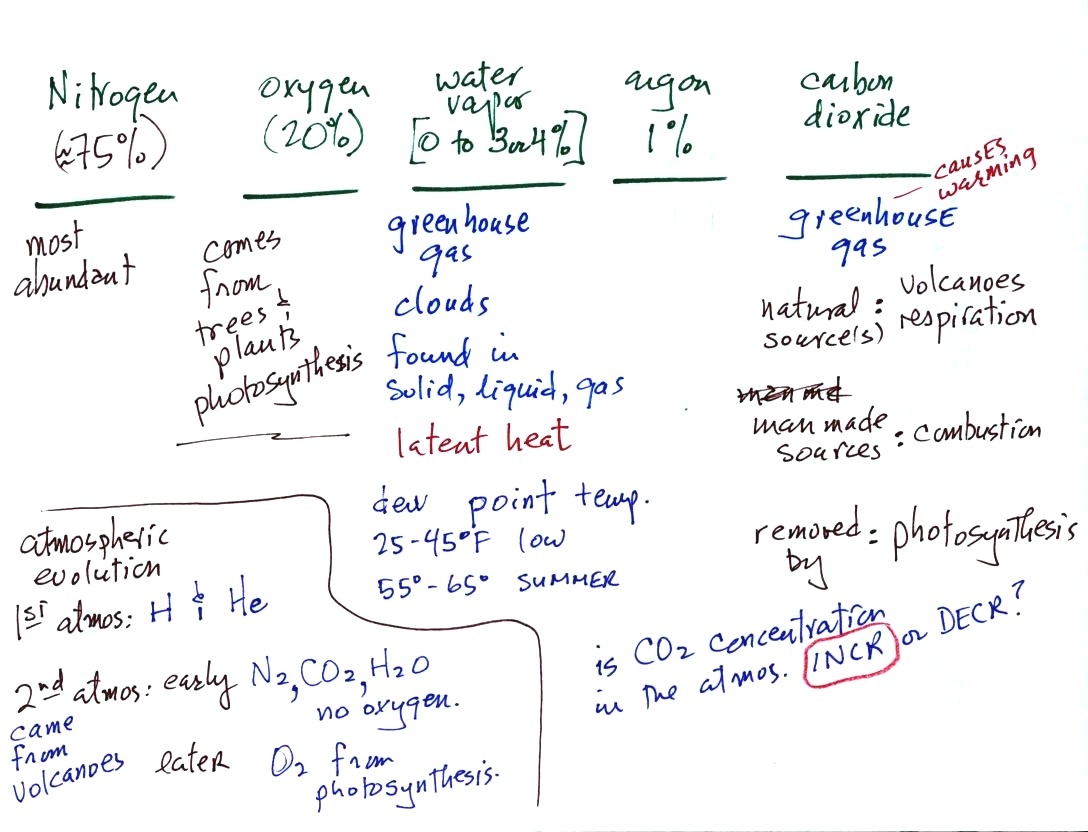 Nitrogen
(≈75%)
most
abundant
oxygen
(20%)
comes
from
trees &
plants
photosynthesis
water
vapor
[0 to 3or4%]
greenhouse
gas
clouds
found in
solid, liquid, gas
latent heat
dew point temp.
25-45°F low
55°-65° SUMMER
argon
1%
carbon
dioxide
causes
warming
greenhouse
gas
natural : volcanoes
source(s) respiration
man made
sources : combustion
removed : photosynthesis
by
is CO2 concentration
in the atmos. INCR or DECR?
atmospheric
evolution
1st atmos: H & He
2nd atmos: early N2, CO2, H2O
no oxygen.
came
from
volcanoes later O2 from
photosynthesis.